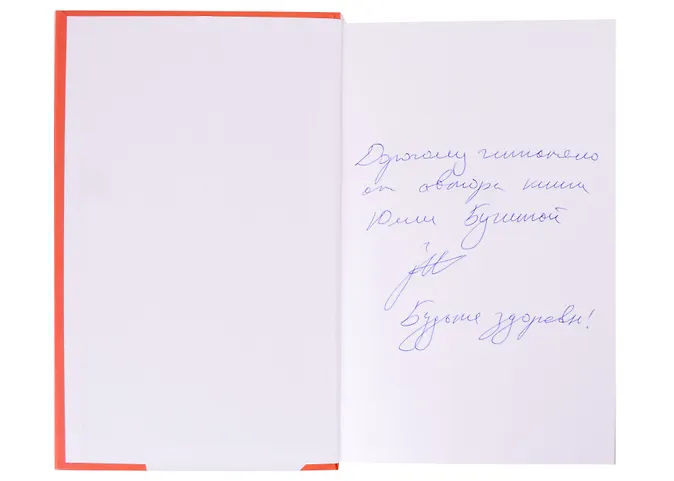 Дорогому читателю
от автора книги
Юлии Бугиной
Будьте здоровы!